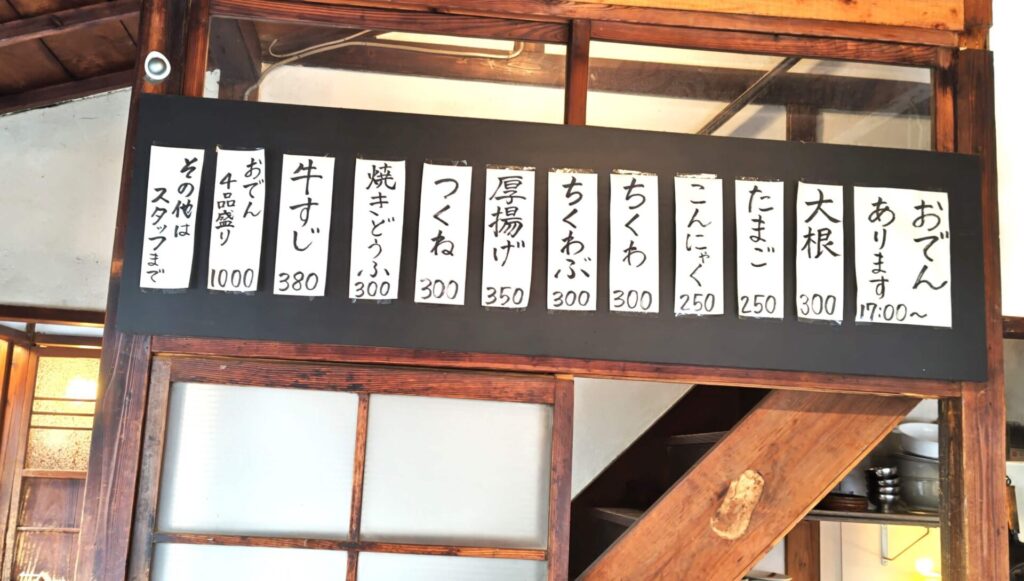 おでん
あります
17:00～
大根
300
たまご
250
こんにゃく
250
ちくわ
300
ちくわぶ
300
厚揚げ
350
つくね
300
焼きどうふ
300
牛すじ
380
おでん
4品盛り
1000
その他は
スタッフまで